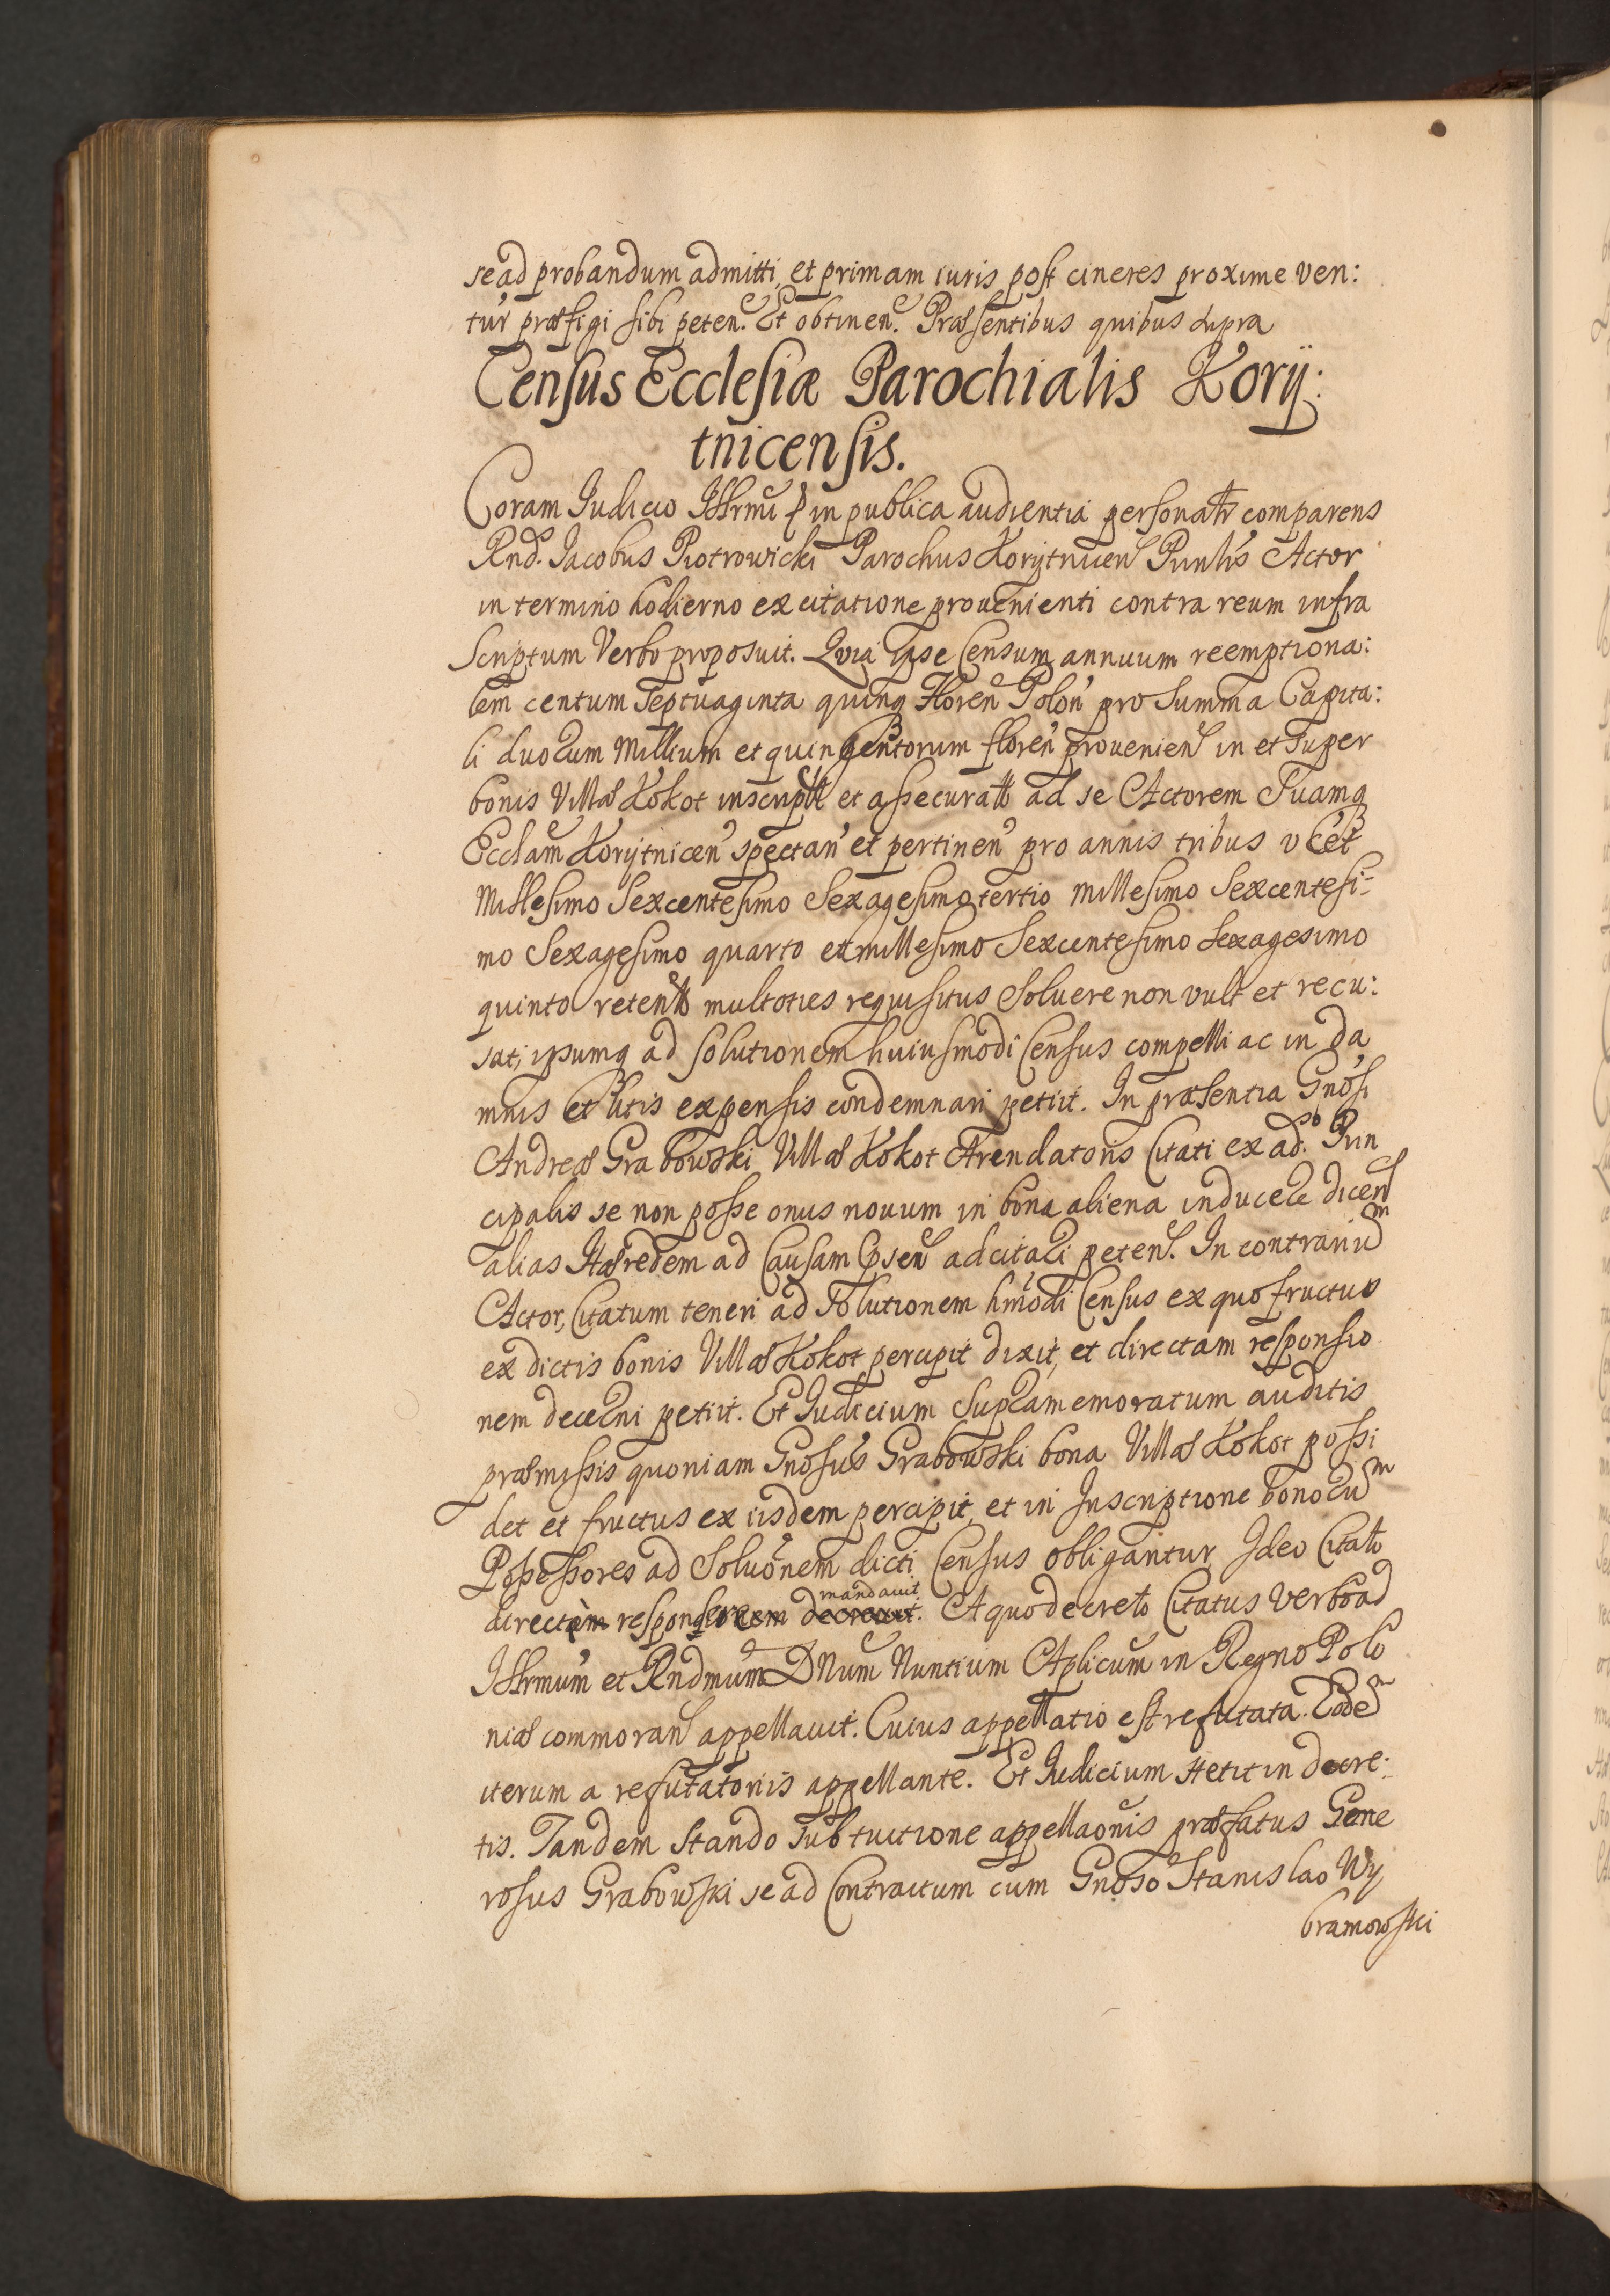 se ad probandum admitti, et primam iuris post cineres proxime ven:
tur præfigi sibi peten. Et obtinen. Præsentibus quibus supra
Census Ecclesiæ Parochialis Korÿ:
tnicensis.
Coram Iudicio Illrmi in publica audientia personatr comparens
Rnd. Iacobus Piotrowicki Parochus Korytnicen Prinlis Actor
in termino hodierno ex citatione prouenienti contra reum infra
Scriptum Verbo proposuit. Quia ipse Censum annuum reemptiona:
lem centum Septuaginta quinq Floren Polon pro Summa Capita:
li duorum Millium et quingentorum floren prouenien in et super
bonis Villæ Kokot inscript et assecurat ad se Actorem Suamq
Ecclam Korytnicen spectan et pertinen pro annis tribus vcet
Millesimo Sexcentesimo Sexagesimo tertio Millesimo Sexcentesi-
mo Sexagesimo quarto et millesimo Sexcentesimo Sexagesimo
quinto retent multoties requisitus Soluere non vult et recu:
sat, ipsumq ad solutionem huiusmodi Census compelli ac in da
mnis et litis expensis condemnari petiit. In præsentia Gnosi
Andreæ Grabowski Villæ Kokot Arendatoris Citati ex ad. Prin
cipalis se non posse onus nouum in bona aliena inducere dicen
alias Hæredem ad Causam Ipsen adcitari peten. In contrariu m
Actor, Citatum teneri ad Solutionem hmodi Census ex quo fructus
ex dictis bonis Villæ Kokot percipit dixit, et directam responsio
nem decerni petiit. Et Iudicium Supramemoratum auditis
præmissis quoniam Gnosus Grabowski bona Villæ Kokot possi
det et fructus ex iisdem percipit, et in Inscriptione bonoru m
Possessores ad Soluonem dicti Census obligantur Ideo Citato
directe respondere mandauit decreuit. A quo decreto Citatus Verbo ad
Illrmum et Rndmum Dnum Nuntium Aplicum in Regno Polo
niæ commoran appellauit. Cuius appellatio est refutata. Eode m
iterum a refutatoriis appellante. Et Iudicium stetit in decre:
tis. Tandem stando sub tuitione appellaonis præfatus Gene
rosus Grabowski se ad Contractum cum Gnoso Stanislao Wy
bramowski